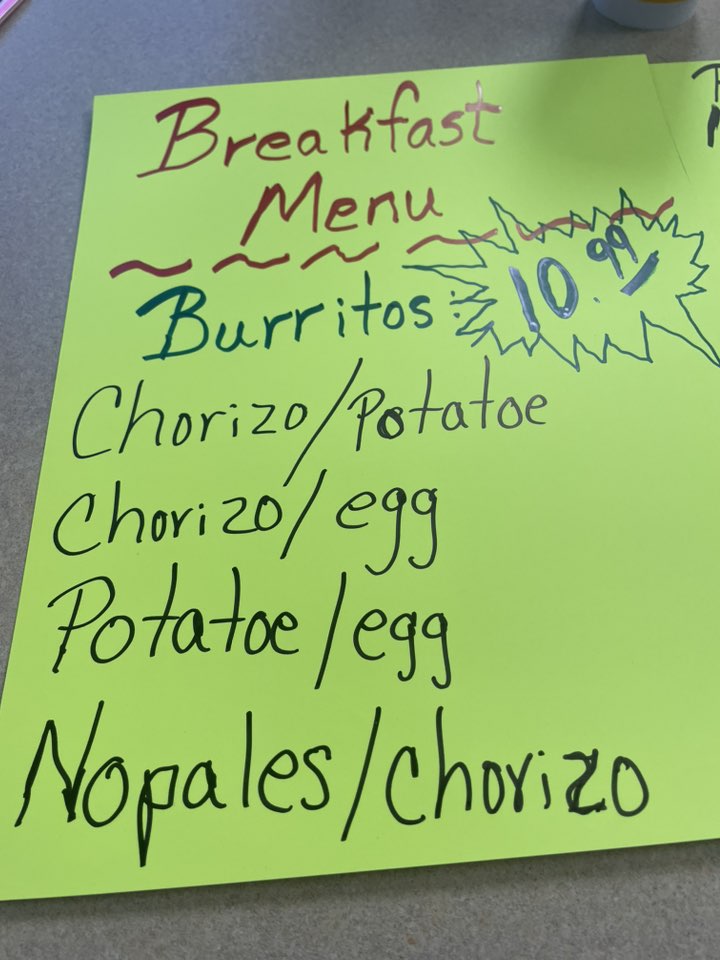 Breakfast
Menu
Burritos: 10.99
Chorizo/Potatoe
Chorizo/egg
Potatoe/egg
Nopales/Chorizo